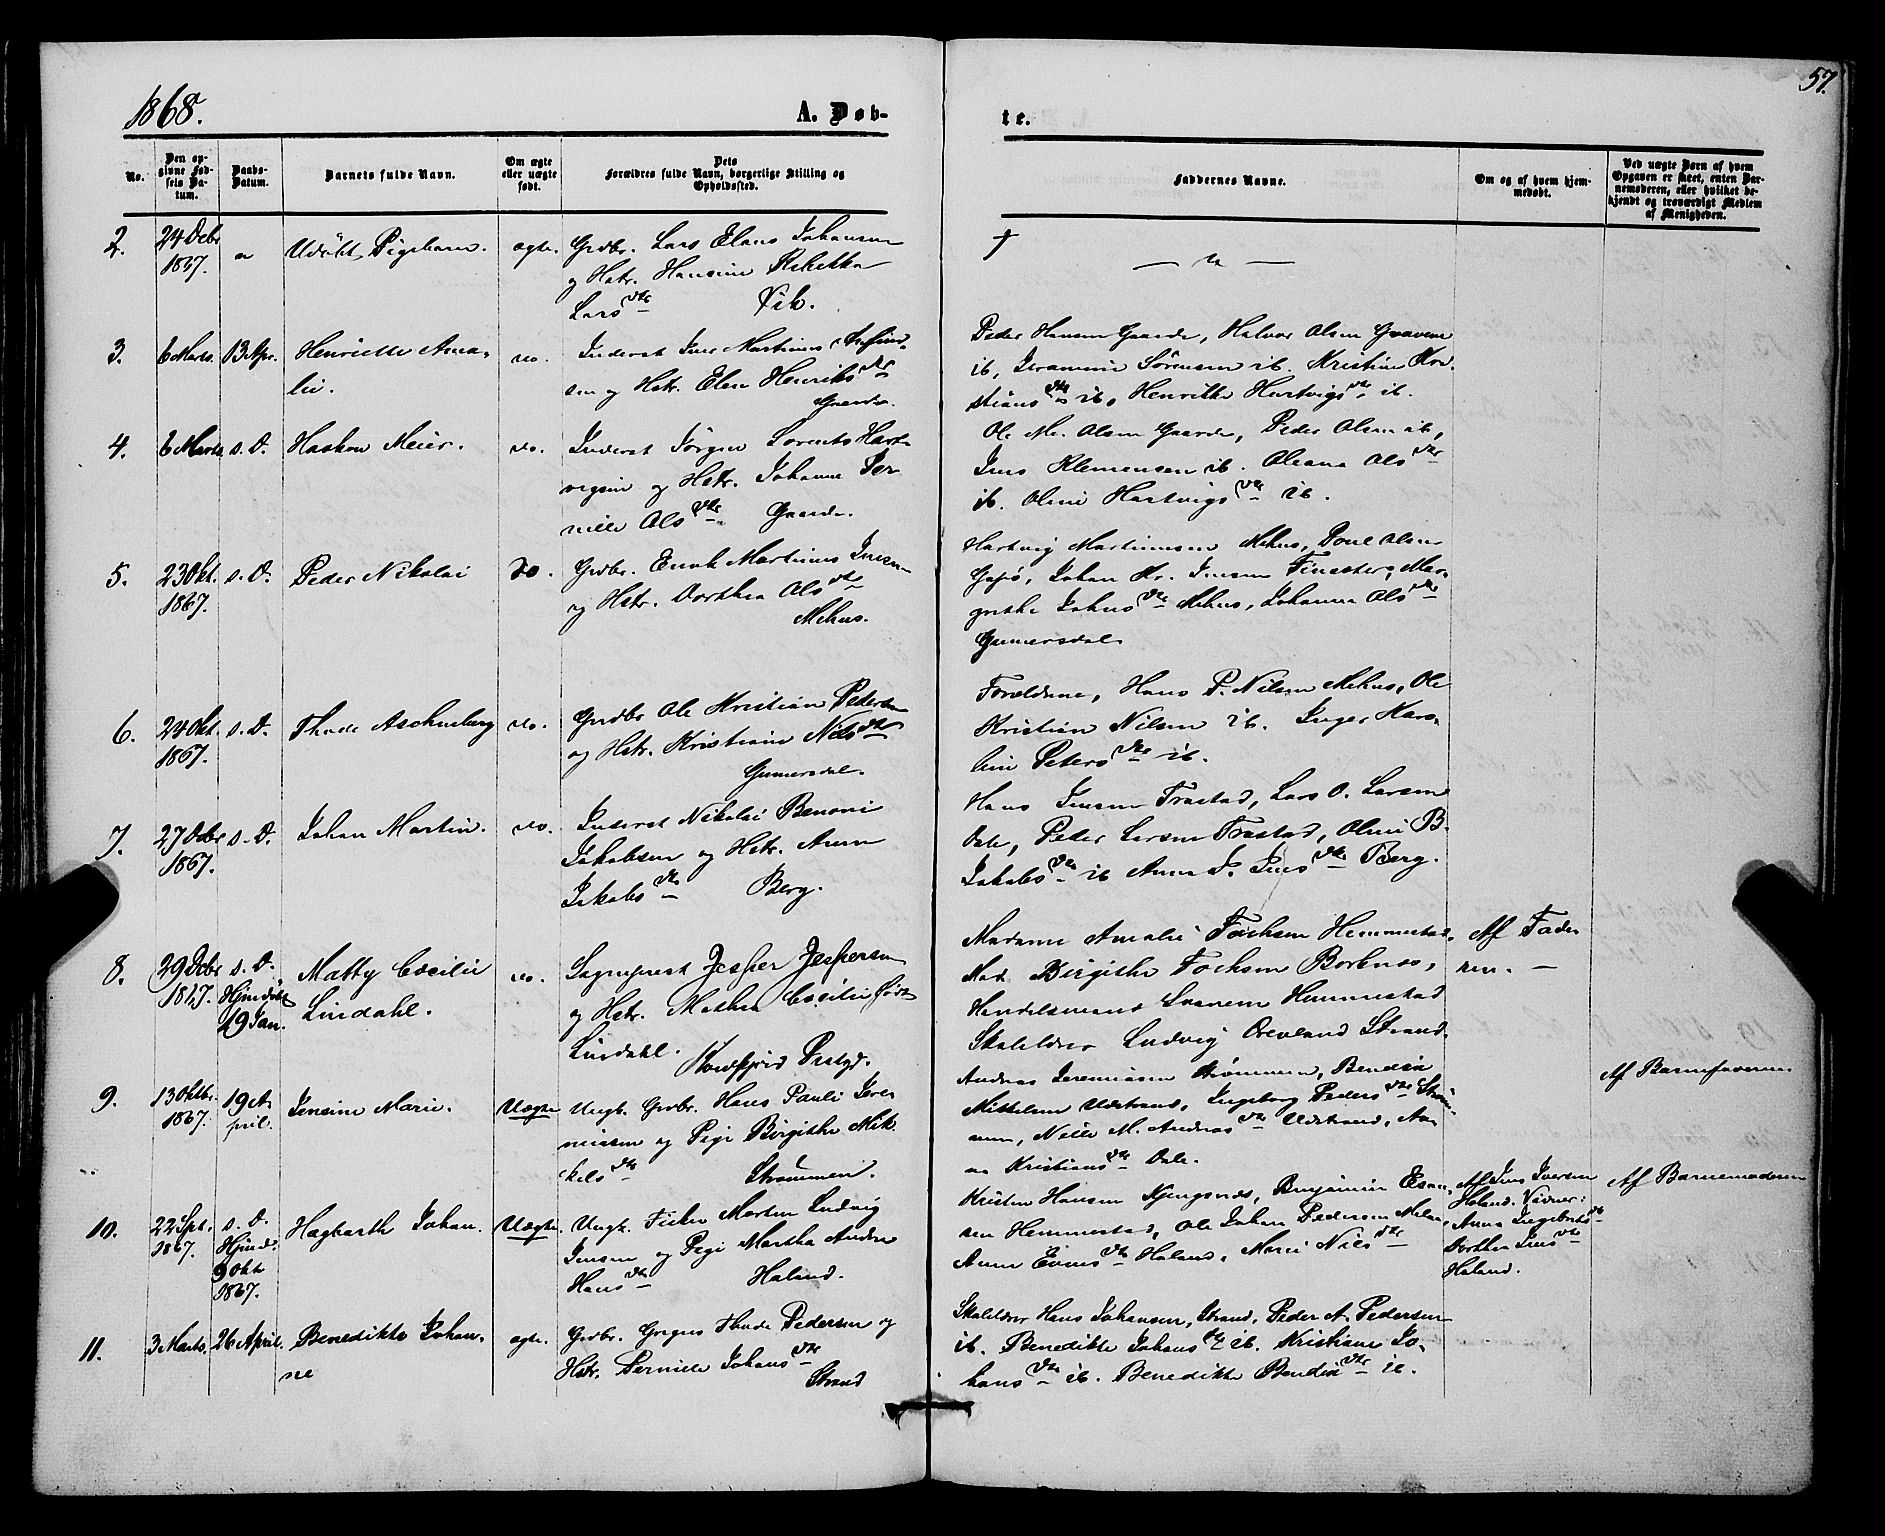 57.
1868.
A. Døb-
te.
No.
Den op-
givne Fød-
sels Da-
tum.
Daabs-
Datum.
Barnets fulde Navn.
Om ægte
eller uægte
født.
Dets
Forældres fulde Navn, borgerlige Stilling og
Opholdssted.
Faddernes Navne.
Om og af hvem hjem-
medøbt.
Ved uægte Børn af hvem
Opgaven er skeet, enten Bar-
nemoderen, eller hvilket be-
kjendt og troværdigt Medlem
af Menigheden.
2.
24 Debr
1867.
"
Udøbt Pigebarn.
ægte.
Grdbr. Lars Elaus Johansen
og Hstr. Hansine Rebekka
Lars dtr Vik.
†
— " —
3.
6 Marts.
13 Apr.
Henriette Ama-
lie.
do.
Inderst Jens Martinus
sen og Hstr. Elen Henriks dtr
Gaarde.
Peder Hansen Gaarde, Halvor Olsen
ib, Sørensen ib. Kristine Kri-
stians dtr ib, Henrikke Hartvigs dtr ib.
4.
6 Marts
s. D.
Haakon Meier.
do.
Inderst Jørgen Lorents Hart-
vigsen og Hstr. Johanna Per-
nille Ols dtr Gaarde.
Ole M. Olsen Gaarde, Peder Olsen ib,
Jens Klemensen ib. Oleana Ols dtr
ib. Oline Hartvigs dtr ib.
5.
23 Okt.
1867.
s. D.
Peder Nikolai
do.
Grdbr. Enok Martinus Jensen
og Hstr. Dorthea Ols dtr
Mehus.
Hartvig Martinussen Mehus, Povel Olsen
Gapø, Johan Kr. Jensen Finsæter, Mar-
grethe Johns dtr Mehus, Johanna Ols dtr
Gumersdal
6.
24 Okt.
1867.
s. D.
Thode Aschenberg
do.
Grdbr Ole Kristian Pedersen
og Hstr. Kristiane Nils dtr
Gumersdal.
Forældrene, Hans P. Nilsen Mehus, Ole
Kristian Nilsen ib. Inger Karo-
line Peters dtr ib.
7.
27 Debr
1867.
s. D.
Johan Martin.
do.
Inderst Nikolai Benoni
Jakobsen og Hstr. Anne
Jakobs dtr Berg.
Hans Jensen Trastad, Lars O. Larsen
Dale, Peder Larsen Trastad, Oline B.
Jakobs dtr ib Anna J. Jens dtr Berg.
8.
29 Debr
1867.
s. D.
Hjemdøbt
19 Jan.
Matty Cecilie
Lindahl.
do.
Sogneprest Jesper Jespersen
og Hstr. Mathea Cecilie født
Lindahl. Prstgd.
Madame Amalie Fochsen Hemmestad,
Mad. Birgithe Fochsen Borkenæs,
Handelsmand Hemmestad
Skoleldrer Ludvig Strand.
Af Fade-
ren. —
9.
13 Oktbr.
1867.
19 A-
pril.
Jensine Marie.
Uægte
Ungk. Grdbr. Hans Pauli Jere-
miassen og Pige Birgithe Mik-
kels dtr Strømmen.
Andreas Jeremiassen Strømmen, Bendix
Mikkelsen Udstrand, Ingeborg Peders dtr Strøm-
men, Nille M. Andreas dtr Udstrand, An-
na Kristians dtr Dale.
Af Barnefaderen
10.
22 Spt.
1867.
s. D.
Hjemd.
9 Okt
1867.
Hagbarth Johan.
Uægte
Ungk. Fisker Morten Ludvig
Jensen og Pige Martha Andrea
Hans dtr Haland.
Kristen Hansen Kjengsnes, Benjamin
sen Hemmestad, Ole Johan Pedersen
Anne dtr Haland, Marie Nils dtr
Af Jens Iversen
Haland. Vidner:
Anna Ingebrikts dtr
Dorthea Jens dtr
Haland.
Af Barnemoderen
11.
3 Marts.
26 April.
Benedikte Johan-
ne
ægte.
Grdbr. Gregus Thode Pedersen og
Hstr. Pernille Johans dtr
Strand
Skoleldrer Hans Johansen, Strand, Peder A. Pedersen
ib. Benedikte Johans dtr ib. Kristiane Jo-
hans dtr ib. Benedikte Bendix dtr ib.